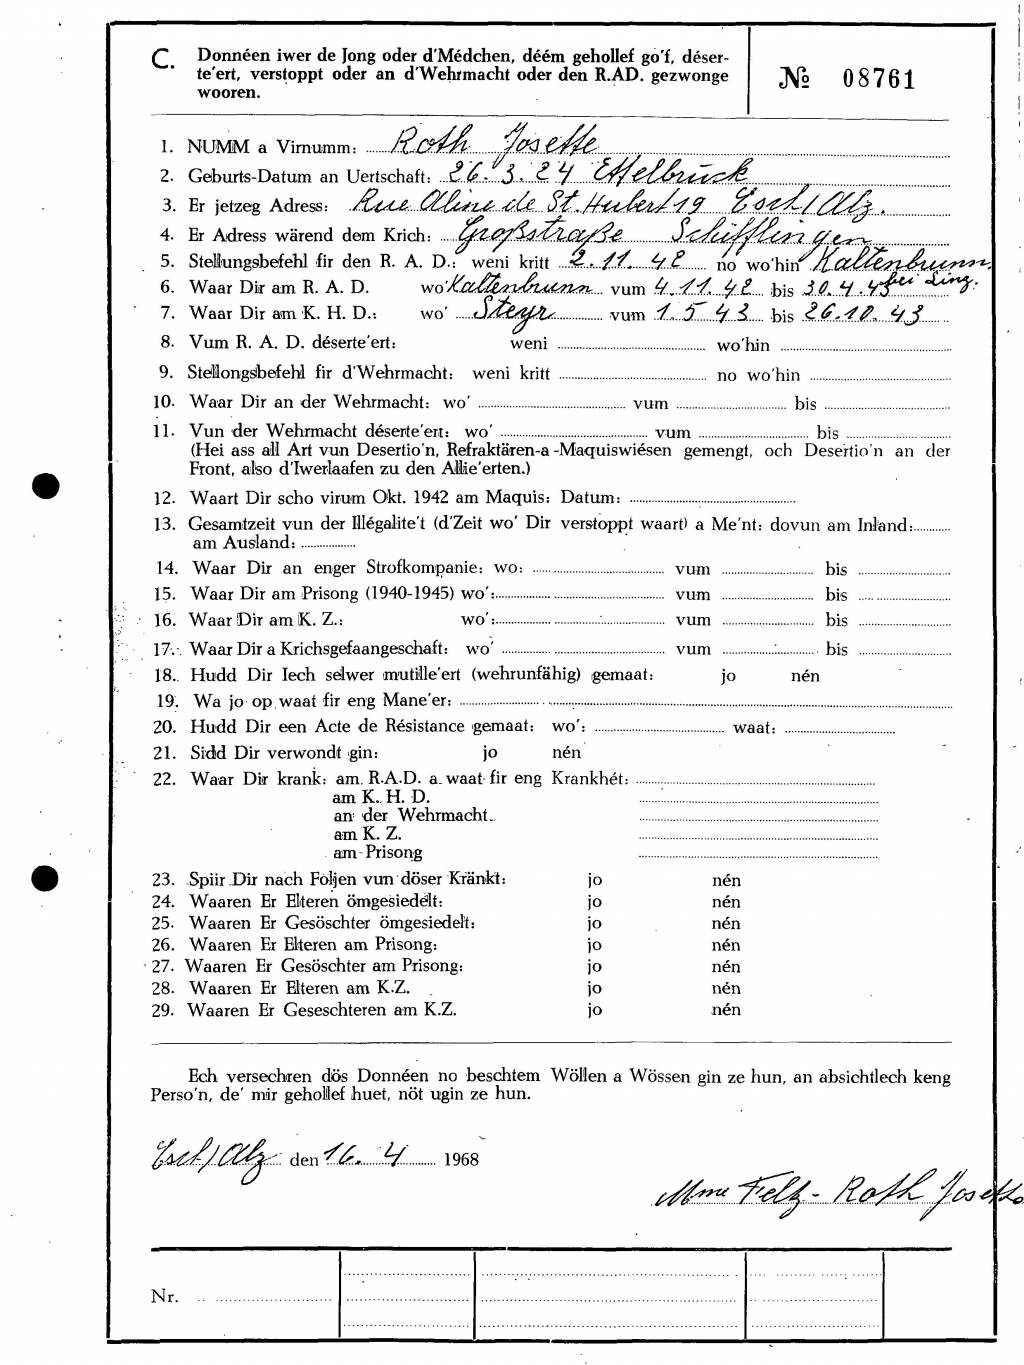 C. Donnéen iwer de Jong oder d'Médchen, déém gehollef go'f, déser-
te'ert, verstoppt oder an d'Wehrmacht oder den R.AD. gezwonge
wooren.
№ 08761
1. NUMM a Virnumm: Roth Josette
2. Geburts-Datum an Uertschaft: 26.3.24 Ettelbrück
3. Er jetzeg Adress: Rue Aline de St. Hubert 19 Esch/Alz.
4. Er Adress wärend dem Krich: Großstraße Schifflingen
5. Stellungsbefehl fir den R. A. D.: weni kritt 2.11.42 no wo'hin Kaltenbrunn
bei Linz.
6. Waar Dir am R. A. D. wo' Kaltenbrunn vum 4.11.42 bis 30.4.43
7. Waar Dir am K. H. D.: wo' Steyr vum 1.5 43 bis 26.10.43
8. Vum R. A. D. déserte'ert: weni wo'hin
9. Stellongsbefehl fir d'Wehrmacht: weni kritt no wo'hin
10. Waar Dir an der Wehrmacht: wo' vum bis
11. Vun der Wehrmacht déserte'ert: wo' vum bis
(Hei ass all Art vun Desertio'n, Refraktären-a-Maquiswiésen gemengt, och Desertio'n an der
Front, also d'Iwerlaafen zu den Allie'erten.)
12. Waart Dir scho virum Okt. 1942 am Maquis: Datum:
13. Gesamtzeit vun der Illégalite't (d'Zeit wo' Dir verstoppt waart) a Me'nt: dovun am Inland:
am Ausland:
14. Waar Dir an enger Strofkompanie: wo: vum bis
15. Waar Dir am Prisong (1940-1945) wo': vum bis
16. Waar Dir am K. Z.: wo': vum bis
17. Waar Dir a Krichsgefaangeschaft: wo' vum bis
18. Hudd Dir Iech selwer mutille'ert (wehrunfähig) gemaat: jo nén
19. Wa jo op waat fir eng Mane'er:
20. Hudd Dir een Acte de Résistance gemaat: wo': waat:
21. Sidd Dir verwondt gin: jo nén
22. Waar Dir krank: am R.A.D. a waat fir eng Krankhét:
am K. H. D.
an der Wehrmacht
am K. Z.
am Prisong
23. Spiir Dir nach Foljen vun döser Kränkt: jo nén
24. Waaren Er Elteren ömgesiedelt: jo nén
25. Waaren Er Gesöschter ömgesiedelt: jo nén
26. Waaren Er Elteren am Prisong: jo nén
27. Waaren Er Gesöschter am Prisong: jo nén
28. Waaren Er Elteren am K.Z. jo nén
29. Waaren Er Geseschteren am K.Z. jo nén
Ech versechren dös Donnéen no beschtem Wöllen a Wössen gin ze hun, an absichtlech keng
Perso'n, de' mir gehollef huet, nöt ugin ze hun.
Esch/Alz den 16. 4 1968
Mme Felz-Roth Josette
Nr.